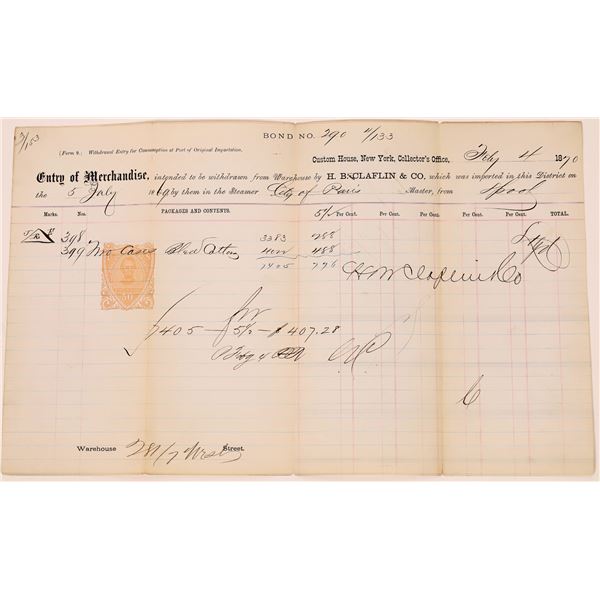 3/153
BOND NO. 290 4/133
(Form 9.) Withdrawal Entry for Consumption at Port of Original Importation.
Custom House, New York, Collector's Office, Feby 4 1870
Entry of Merchandise, intended to be withdrawn from Warehouse by H. B. CLAFLIN & CO, which was imported in this District on
the 5 July 1869 by them in the Steamer City of Paris Master, from Lpool
Marks. Nos. PACKAGES AND CONTENTS. 5½ Per Cent. Per Cent. Per Cent. Per Cent. Per Cent. TOTAL.
398 3383 288
399 Two Cases Cotton 4022 488
7405 776
H B Claflin & Co
7405 5½ $407.28
Warehouse Street.